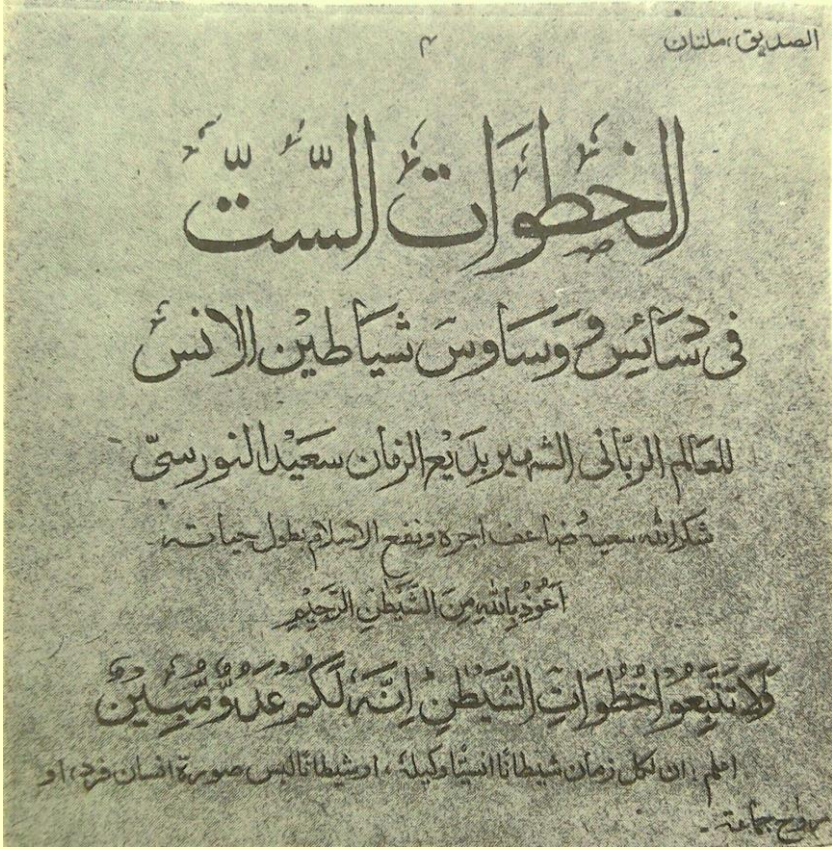 الصدیق، ملتان
۴
الخُطْوَاتُ السِّتُّ
فی دَسَائِسِ وَ وَسَاوِسَ شَیَاطِیْنِ الْاِنْسِ
للعَالم الربّانی الشهیر بدَیْع الزمان سَعَیْد النورسیّ
شکر الله سعیهٗ ضاعف اجرہ ونفع الاسلام بطول حیاتہ
اَعُوْذُ بِاللّٰهِ مِنَ الشَّیْطٰنِ الرَّجِیْمِ
وَلَا تَتَّبِعُوْا خُطُوَاتِ الشَّیْطٰنِ اِنَّهٗ لَکُمْ عَدُوٌّ مُّبِیْنٌ
اعلم: ان لکل زمان شیطانًا انسیًّا وکیلهٗ، او شیطانًا لبس صورة انسان فرد، او
روح جماعة۔